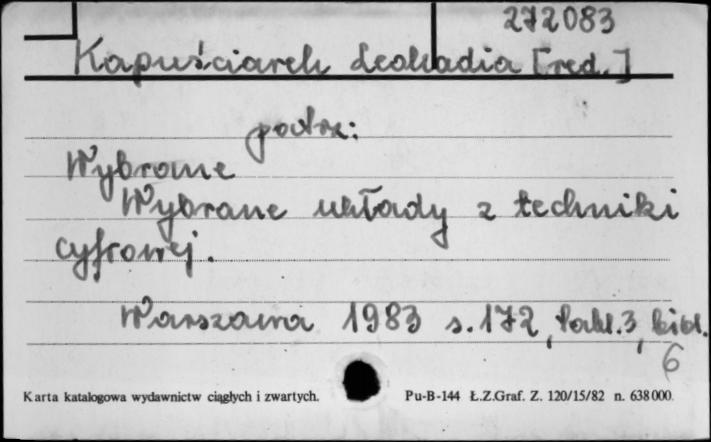 272083
Kapuściarek Leokadia [red.]
patrz:
Wybrane
Wybrane układy z techniki
cyfrowej.
Warszawa 1983 s.172, tabl.3, bibl.
6
Karta katalogowa wydawnictw ciągłych i zwartych. Pu-B-144 Ł.Z.Graf. Z. 120/15/82 n. 638000.